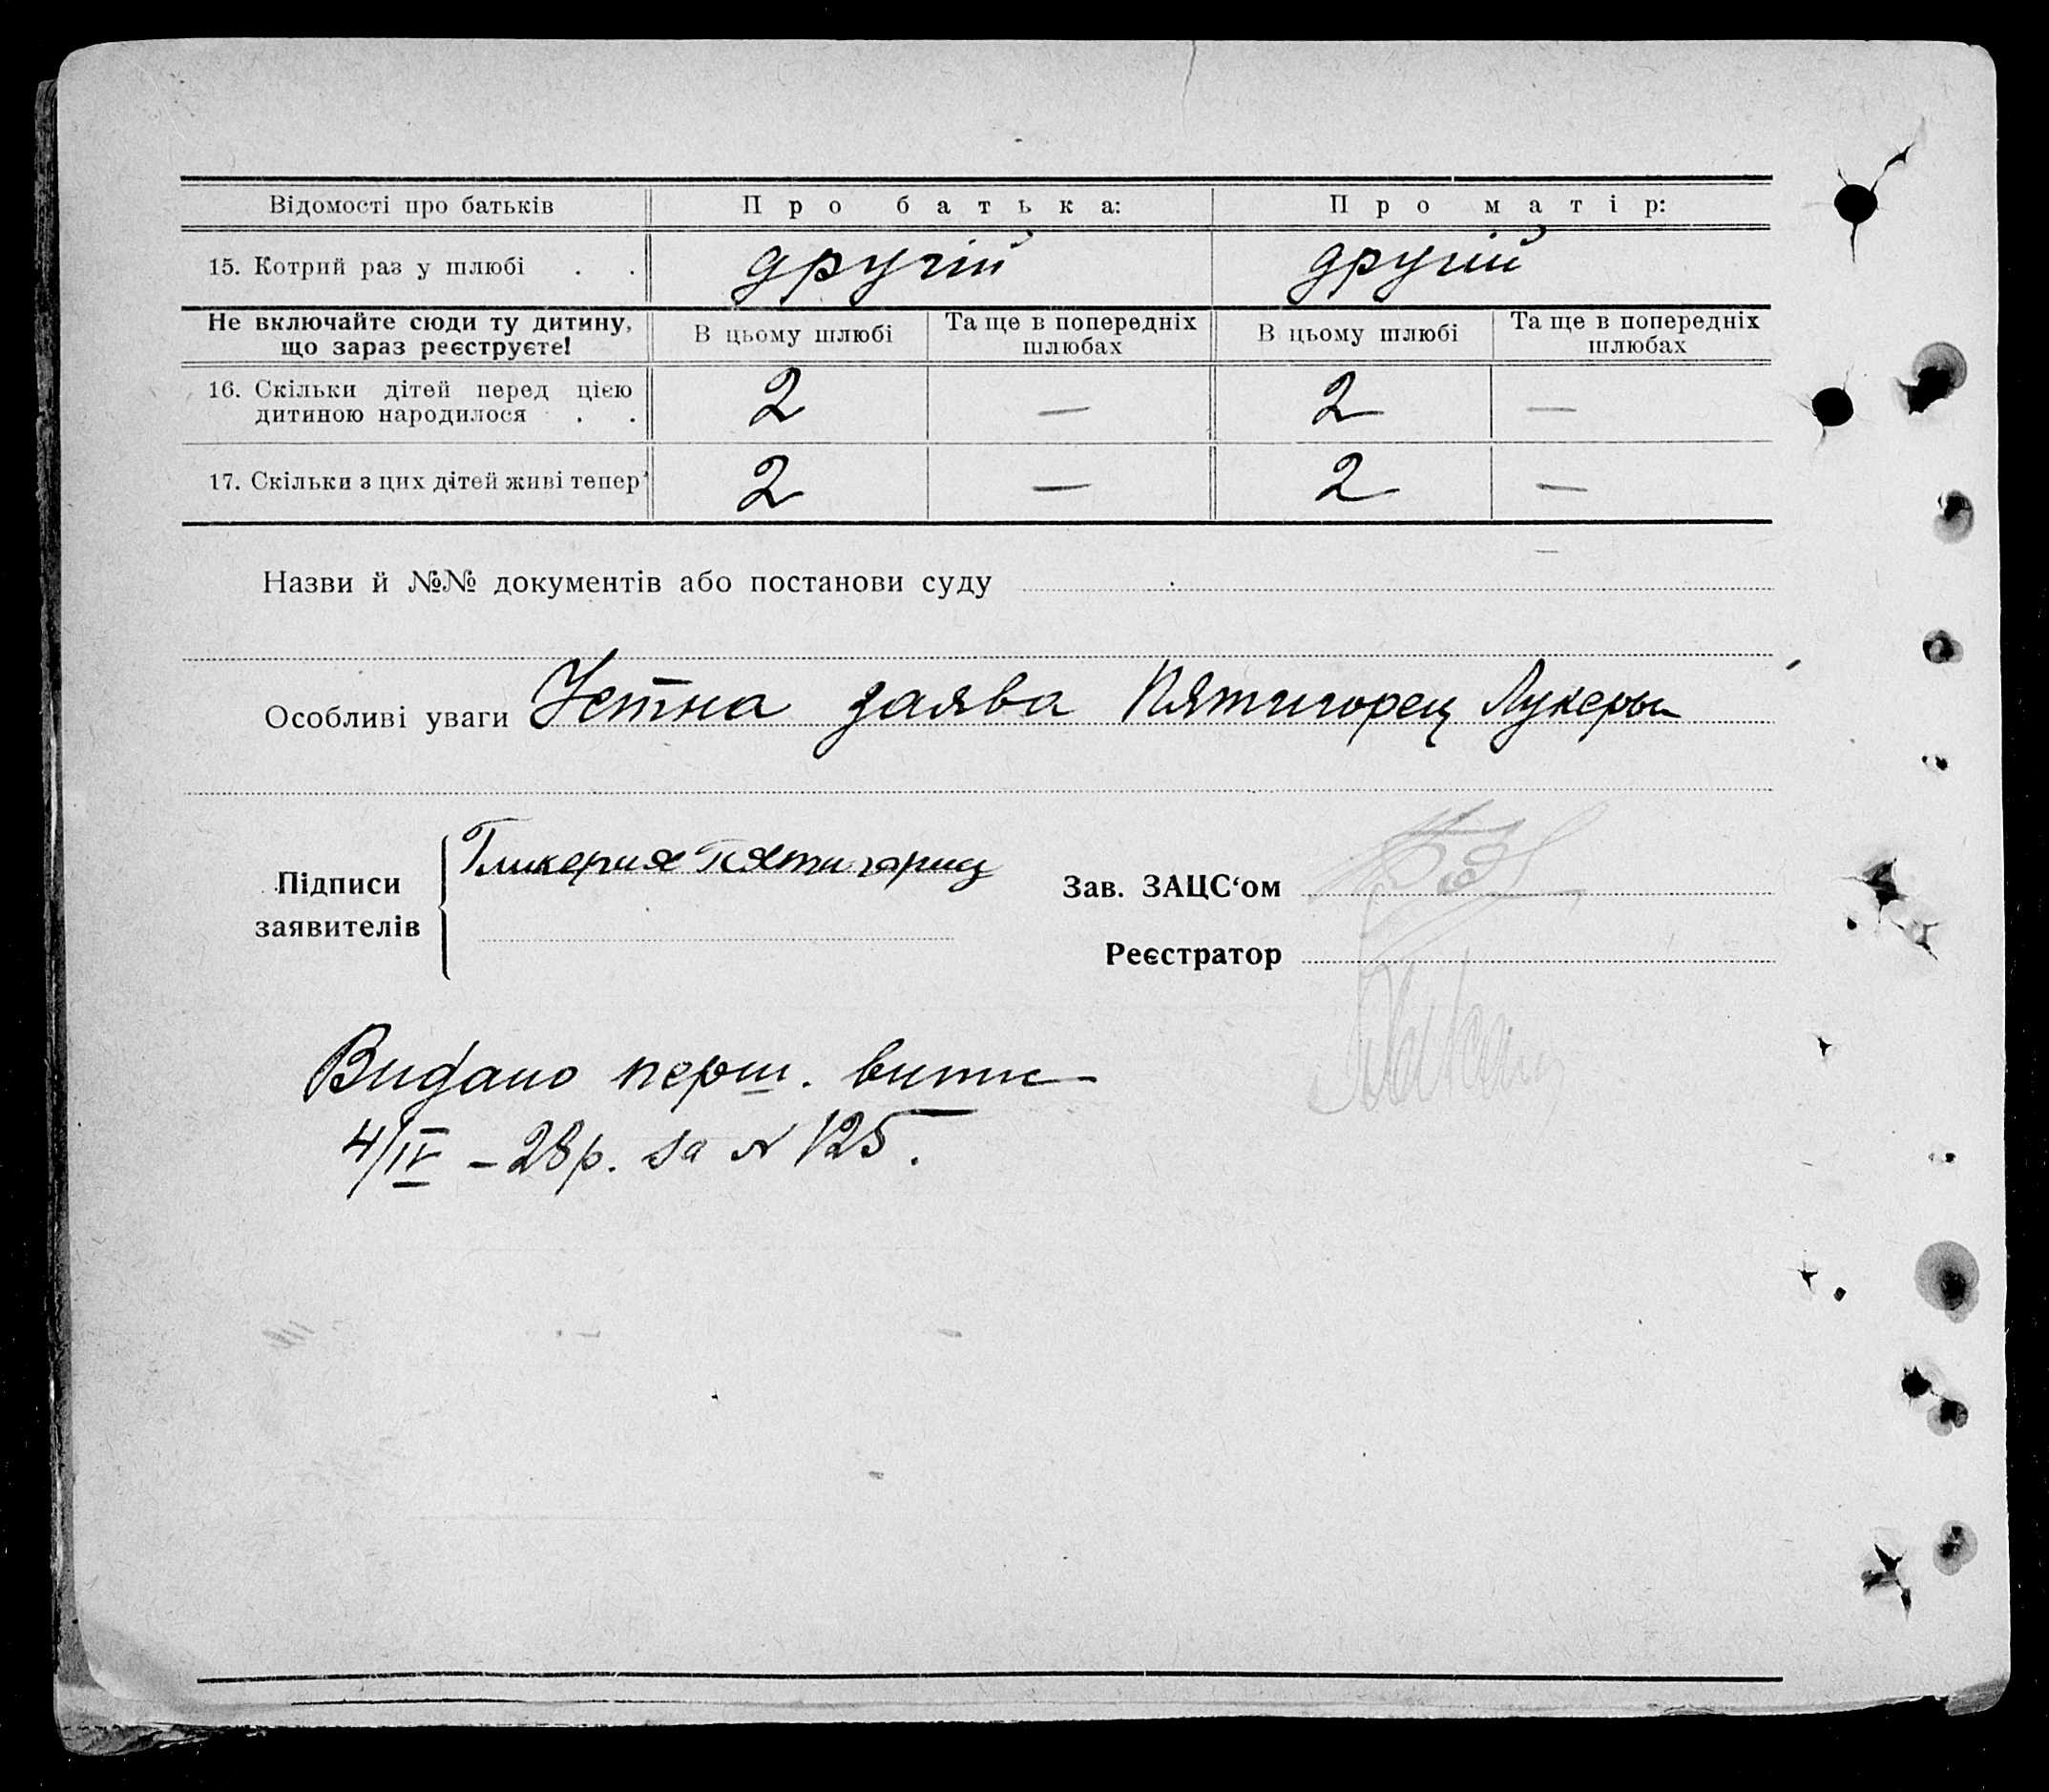 Відомості про батьків Про батька: Про матір:
15. Котрий раз у шлюбі . . другій другій
Не включайте сюди ту дитину, що зараз реєструєте! В цьому шлюбі Та ще в попередніх шлюбах В цьому шлюбі Та ще в попередніх шлюбах
16. Скільки дітей перед цією дитиною народилося . . 2 — 2 —
17. Скільки з цих дітей живі тепер 2 — 2 —
Назви й №№ документів або постанови суду —
Особливі уваги Устна заява Пятигорец Лукеры
Підписи заявителів Гликерия Пятигориц
Зав. ЗАЦС‘ом
Реєстратор
Видано перш. витяг
4/IV – 28 р. за № 125.